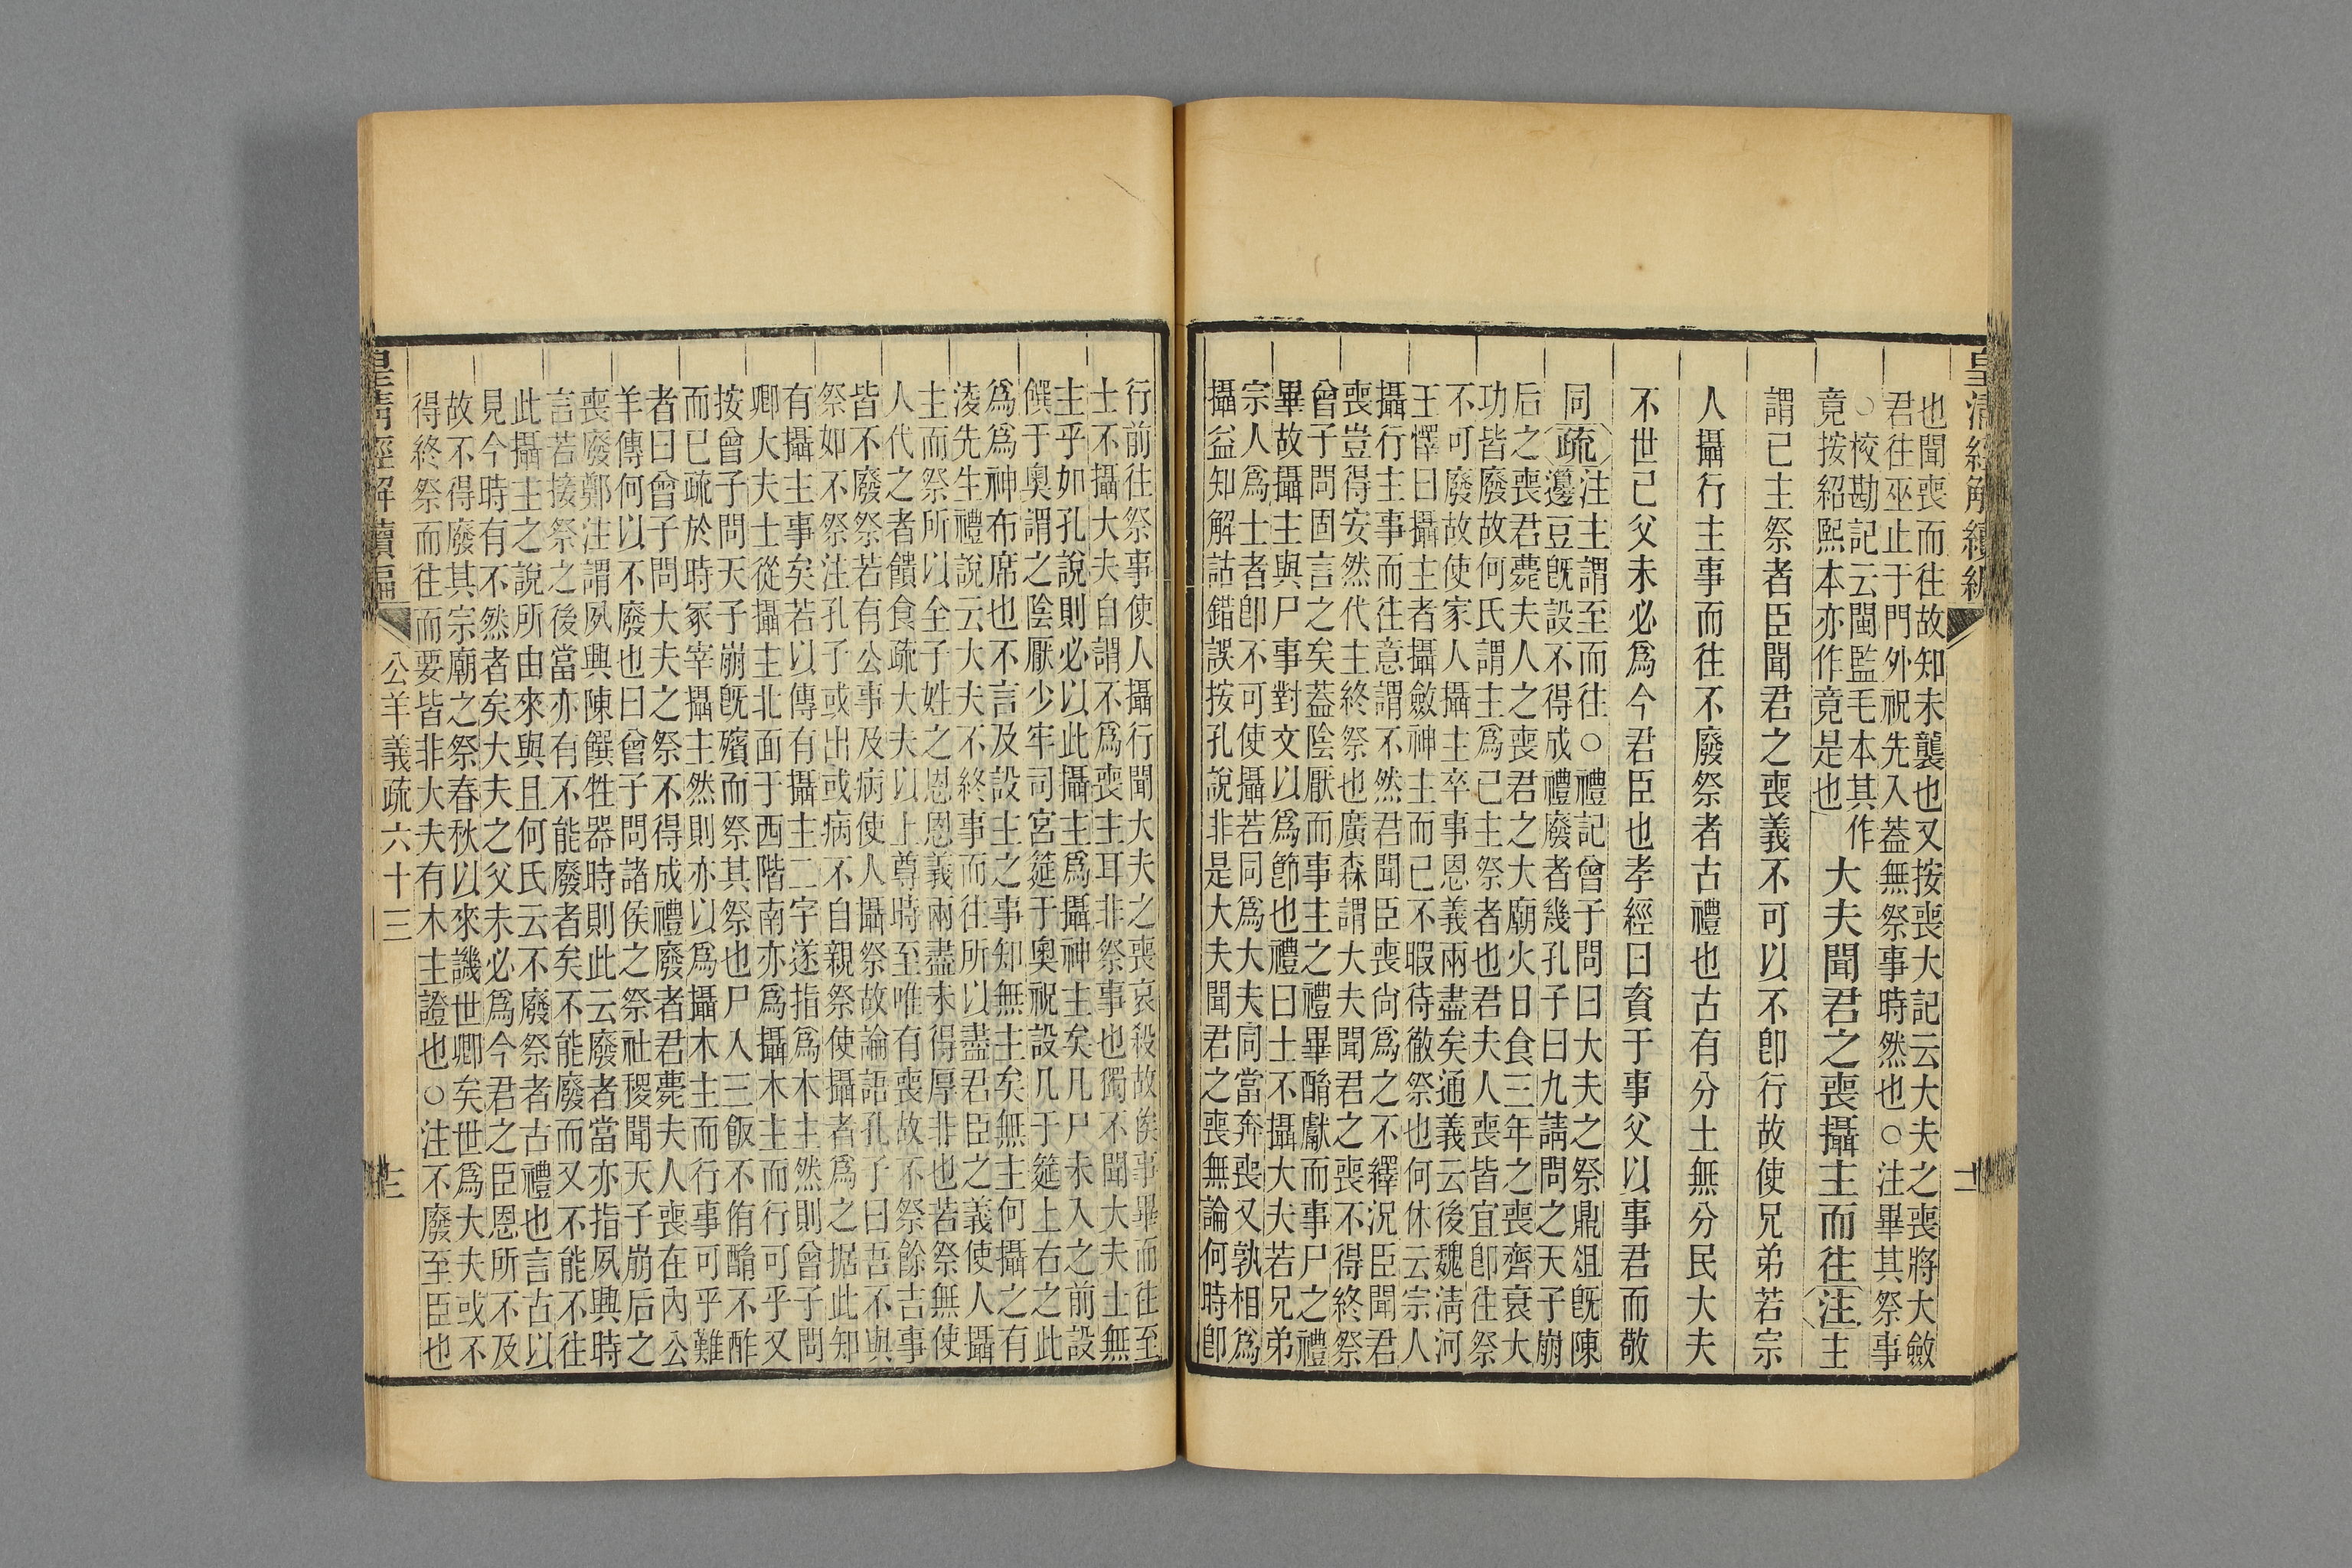 皇清經解續編
也聞喪而往故知未襲也又按喪大記云大夫之喪將大斂
君往巫止于門外祝先入葢無祭事時然也○注畢其祭事
○校勘記云閩監毛本其作
竟按紹熙本亦作竟是也
大夫聞君之喪攝主而往注主
謂已主祭者臣聞君之喪義不可以不卽行故使兄弟若宗
人攝行主事而往不廢祭者古禮也古有分土無分民大夫
不世已父未必爲今君臣也孝經曰資于事父以事君而敬
同疏
注主謂至而往○禮記曾子問曰大夫之祭鼎俎旣陳
籩豆旣設不得成禮廢者幾孔子曰九請問之天子崩
后之喪君薨夫人之喪君之大廟火日食三年之喪齊衰大
功皆廢故何氏謂主爲已主祭者也君夫人喪皆宜卽往祭
不可廢故使家人攝主卒事恩義兩盡矣通義云後魏淸河
王懌曰攝主者攝斂神主而已不暇待徹祭也何休云宗人
攝行主事而往意謂不然君聞臣喪尙爲之不繹況臣聞君
喪豈得安然代主終祭也廣森謂大夫聞君之喪不得終祭
曾子問固言之矣葢陰厭而事主之禮畢酳獻而事尸之禮
畢故攝主與尸事對文以爲節也禮曰士不攝大夫若兄弟
宗人爲士者卽不可使攝若同爲大夫同當奔喪又孰相爲
攝益知解詁錯誤按孔說非是大夫聞君之喪無論何時卽
十二
行前往祭事使人攝行聞大夫之喪哀殺故俟事畢而往至
士不攝大夫自謂不爲喪主耳非祭事也獨不聞大夫士無
主乎如孔說則必以此攝主爲攝神主矣几尸未入之前設
饌于奧謂之陰厭少牢司宮筵于奧祝設几于筵上右之此
爲爲神布席也不言及設主之事知無主矣無主何攝之有
淩先生禮說云大夫不終事而往所以盡君臣之義使人攝
主而祭所以全子姓之恩恩義兩盡未得厚非也若祭無使
人代之者饋食疏大夫以上尊時至唯有喪故不祭餘吉事
皆不廢祭若有公事及病使人攝祭故論語孔子曰吾不與
祭如不祭注孔子或出或病不自親祭使攝者爲之据此知
有攝主事矣若以傳有攝主二字遂指爲木主然則曾子問
卿大夫士從攝主北面于西階南亦爲攝木主而行可乎又
按曾子問天子崩旣殯而祭其祭也尸入三飯不侑酳不酢
而已疏於時冢宰攝主然則亦以爲攝木主而行事可乎難
者曰曾子問大夫之祭不得成禮廢者君薨夫人喪在內公
羊傳何以不廢也曰曾子問諸侯之祭社稷聞天子崩后之
喪廢鄭注謂夙興陳饌牲器時則此云廢者當亦指夙興時
言若接祭之後當亦有不能廢者矣不能廢而又不能不往
此攝主之說所由來與且何氏云不廢祭者古禮也言古以
見今時有不然者矣大夫之父未必爲今君之臣恩所不及
故不得廢其宗廟之祭春秋以來譏世卿矣世爲大夫或不
得終祭而往而要皆非大夫有木主證也○注不廢至臣也
皇淸經解續編
公羊義疏六十三